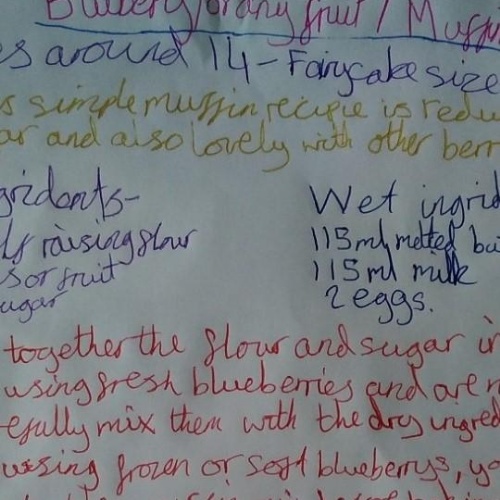 Blueberry/or any fruit/Muffin
es around 14 - Fairycake size
s simple muffin recipie is redu
ar and also lovely with other berr
gridents-
lf raising flour
s or fruit
ugar
Wet ingrid
115ml melted bu
115ml milk
2 eggs.
together the flour and sugar in
using fresh blueberries and are
efully mix them with the dry ingred
using frozen or soft blueberrys, yo